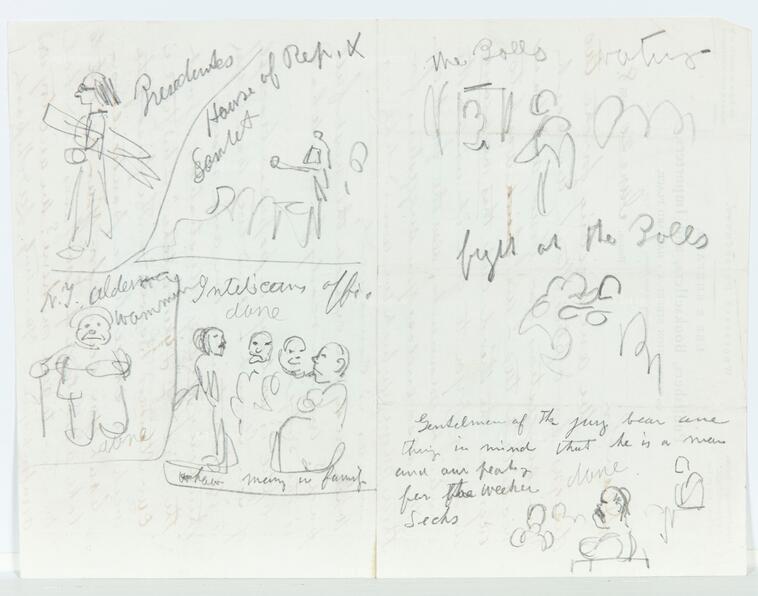 Presedentes
House of Rep. X
Sanlet
N.Y. aldermany
wammen
Intelicens offi.
done
how many in famif
done
the Polls voting
fight at the Polls
Gentelmen of the jury bear one
thing in mind that he is a man
and our peaty
for the weeker
Secks
done